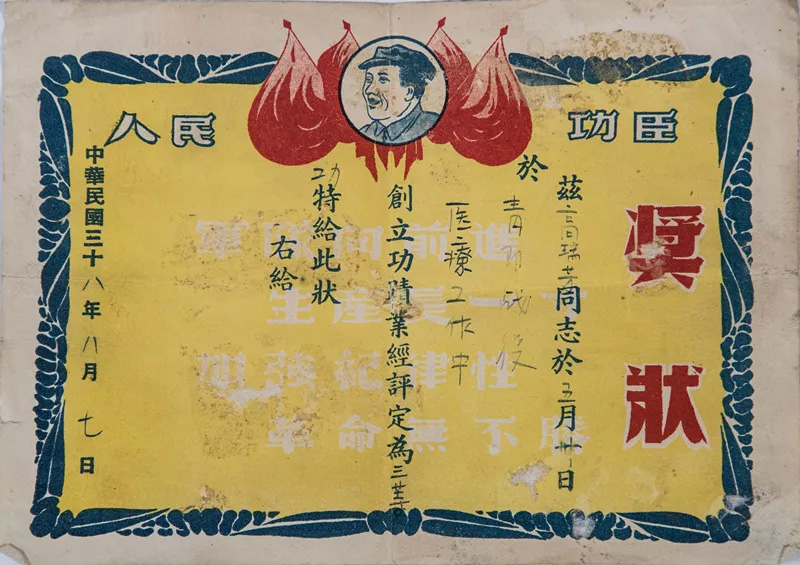 人民 功臣
奬狀
茲高瑞芳同志於五月卅日
於青即战役
医療工作中
創立功蹟業經評定為三等
功特給此狀
右給
中華民國三十八年八月七日
軍隊向前進
生產長一寸
加強紀律性
革命無不勝